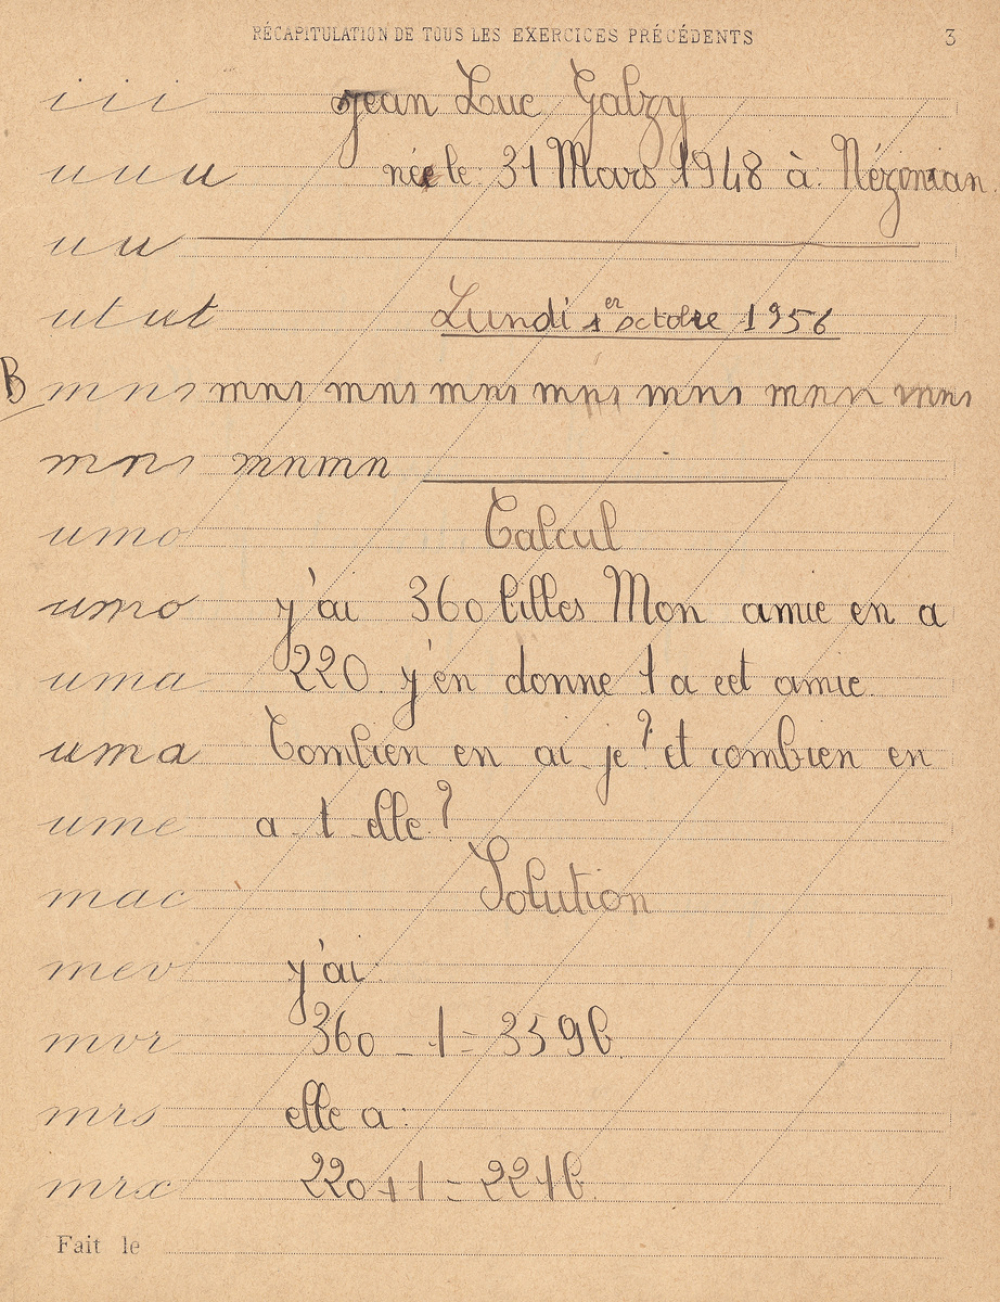 RÉCAPITULATION DE TOUS LES EXERCICES PRÉCÉDENTS 3
i i i Jean Luc Galzy
u u u née le 31 Mars 1948 à Nézignan.
u u
ut ut Lundi 1er octobre 1956
B m n s mns mns mns mns mns mnn mns
m n s mnmn
umo Calcul
umo y'ai 360 billes Mon amie en a
uma 220. y'en donne 1 a cet amie.
uma Combien en ai-je? et combien en
ume a-t-elle?
mac Solution
mev y'ai:
mvr 360 - 1 = 359 b.
mrs elle a:
mrx 220 + 1 = 221 b.
Fait le